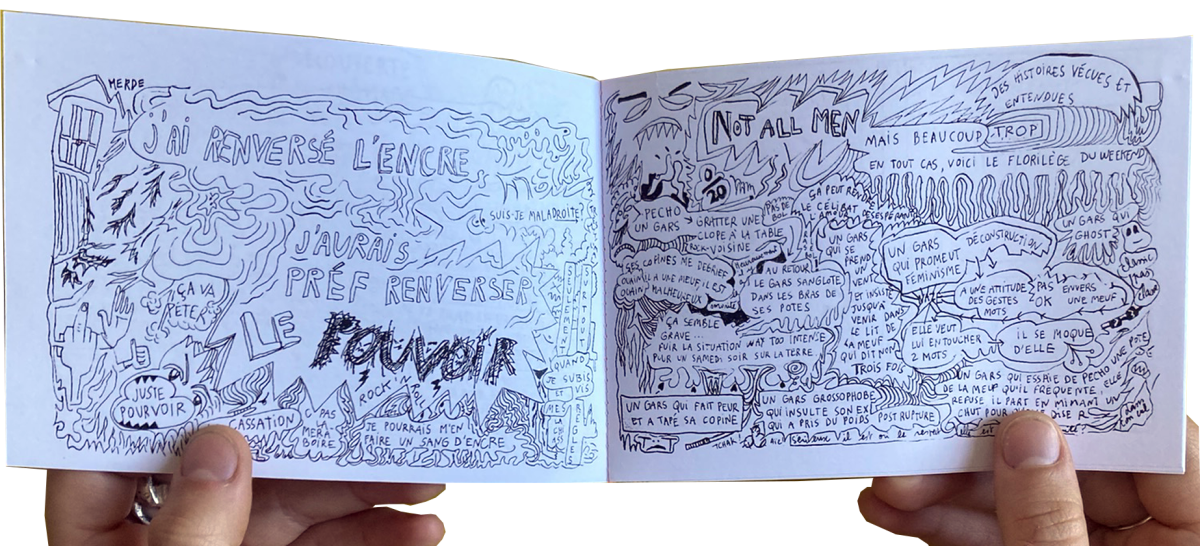 MERDE
J'AI RENVERSÉ L'ENCRE,
SUIS-JE MALADROITE?
J'AURAIS
PRÉF RENVERSER
ÇA VA
PÉTER
LE
POUVOIR
ROCK'N
JUSTE
POURVOIR
CASSATION
C PAS
MER À
BOIRE
JE POURRAIS M'EN
FAIRE UN SANG D'ENCRE
SEULEMENT
SURTOUT
QUAND
JE SUBIS
ET
MES
RÈGLES
DES HISTOIRES VÉCUES ET
ENTENDUES
NOT ALL MEN
MAIS BEAUCOUP TROP
EN TOUT CAS, VOICI LE FLORILÈGE DU WEEKEND
0/20
PAM
PECHO
UN GARS
GRATTER UNE
CLOPE À LA TABLE
VOISINE
PAS DE
BOL
ÇA PEUT
LE CÉLIBAT
L'AMOUR
DÉSESPÉRANT
SES COPINES ME DEBRIEF
OUAIN IL A UNE MEUF IL EST
OUAIN MALHEUREUX
AU RETOUR
LE GARS SANGLOTE
DANS LES BRAS DE
SES POTES
ÇA SEMBLE
GRAVE...
POUR LA SITUATION WAY TOO INTENSE
POUR UN SAMEDI SOIR SUR LA TERRE.
UN GARS
QUI SE
PREND
UN
VENT
ET INSISTE
JUSQU'À
VENIR DANS
LE LIT DE
LA MEUF
QUI DIT NON
TROIS FOIS
UN GARS
QUI PROMEUT
FÉMINISME
DÉCONSTRUCTION
A UNE ATTITUDE
DES GESTES
MOTS
PAS
OK
ENVERS
UNE MEUF
UN GARS QUI
GHOST
classic
mais
classe
ELLE VEUT
LUI EN TOUCHER
2 MOTS
IL SE MOQUE
D'ELLE
UN GARS QUI FAIT PEUR
ET A TAPÉ SA COPINE
UN GARS GROSSOPHOBE
QUI INSULTE SON EX
QUI A PRIS DU POIDS
POST RUPTURE
UN GARS QUI ESSAIE DE PECHO UNE POTE
DE LA MEUF QU'IL FRÉQUENTE, ELLE
REFUSE IL PART EN MIMANT UN
CHUT POUR
TCHAK
elle est